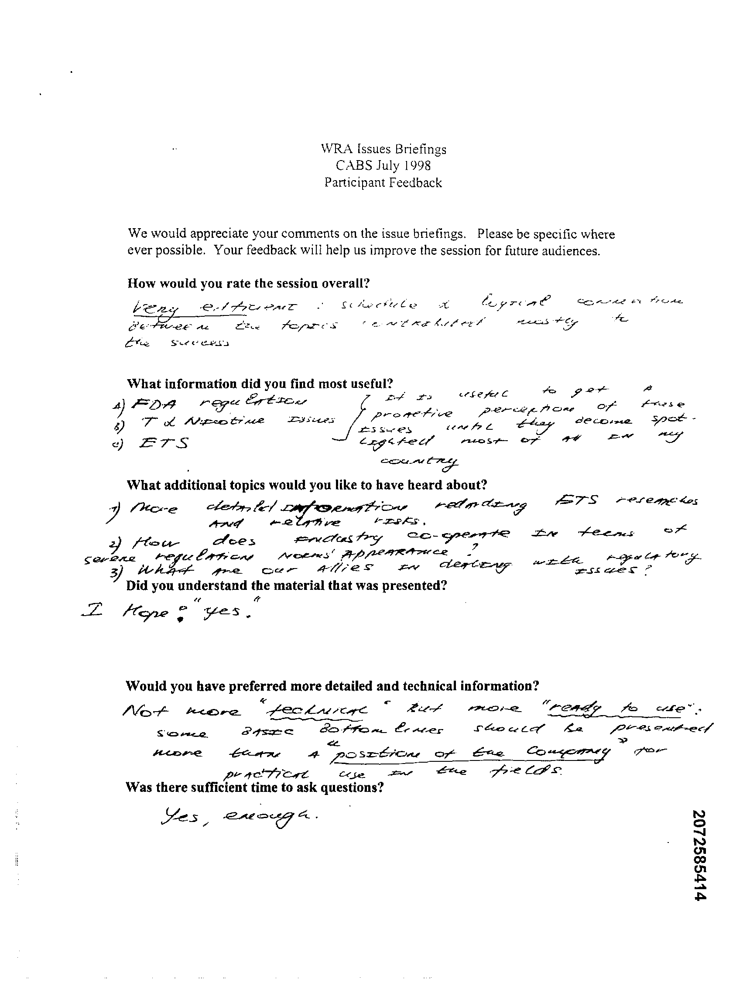 WRA Issues Briefings
CABS July 1998
Participant Feedback
We would appreciate your comments on the issue briefings. Please be specific where
ever possible. Your feedback will help us improve the session for future audiences.
How would you rate the session overall?
Very efficient : schedule & logical connection
between the topics contributed mostly to
the success
What information did you find most useful?
A) FDA regulation
B) T & Nicotine Issues
C) ETS
It is useful to get a
proactive perception of these
issues until they become spot-
lighted most of all in my
country
What additional topics would you like to have heard about?
1) More detailed information regarding ETS researches
and relative risks.
2) How does industry co-operate in teems of
severe regulation norms' appearance?
3) What are our allies in dealing with regulatory
issues?
Did you understand the material that was presented?
I Hope: "yes."
Would you have preferred more detailed and technical information?
Not more "technical" but more "ready to use":
some basic bottom lines should be presented
more than a "position of the Company" for
practical use in the fields.
Was there sufficient time to ask questions?
Yes, enough.
2072585414